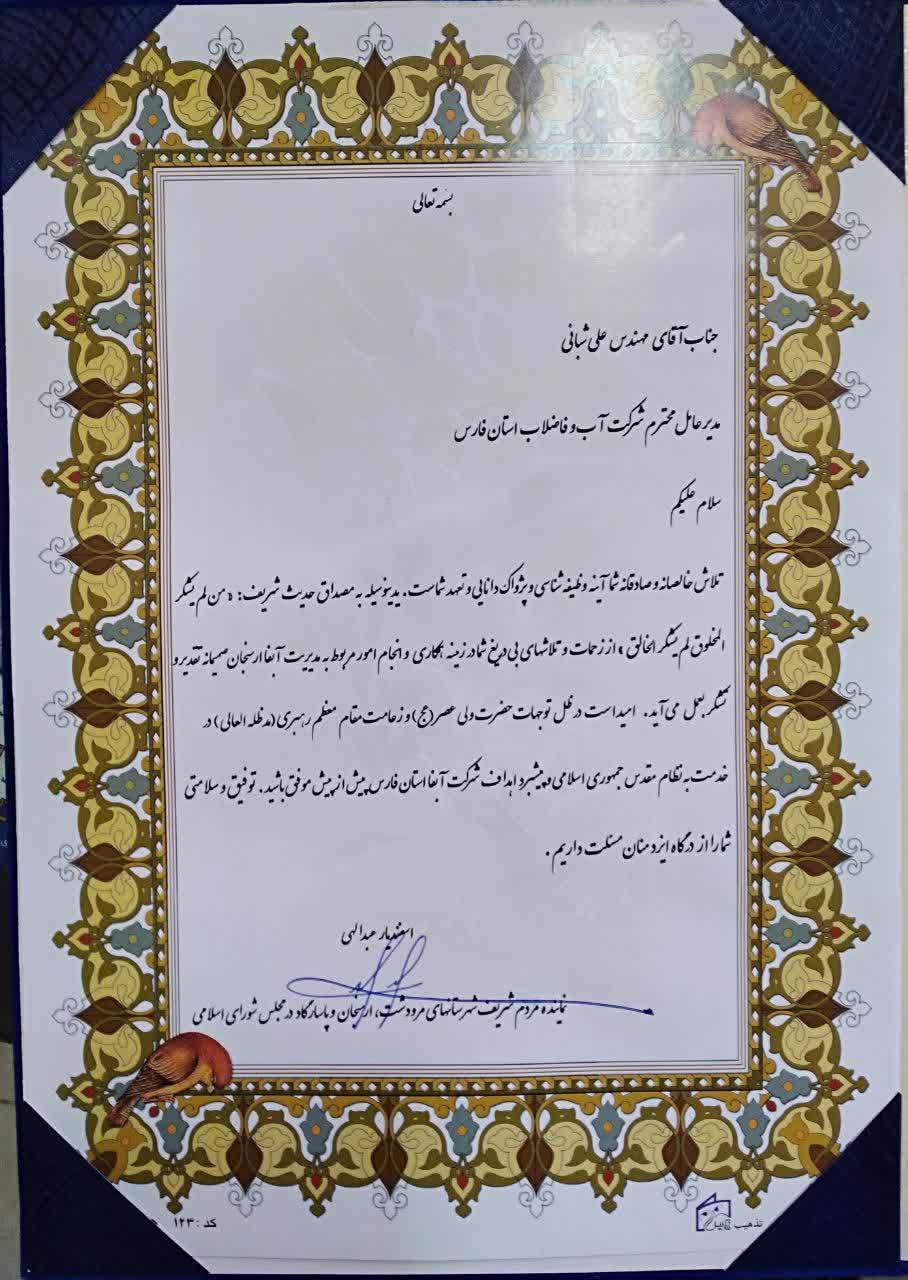 بسمه تعالی
جناب آقای مهندس علی شبانی
مدیر عامل محترم شرکت آب و فاضلاب استان فارس
سلام علیکم
تلاش خالصانه و صادقانه شما آینه وظیفه شناسی و پژواک دانایی و تعهد شماست. بدینوسیله به مصداق حدیث شریف: « من لم یشکر
المخلوق لم یشکر الخالق » از زحمات و تلاشهای بی دریغ شما در زمینه همکاری و انجام امور مربوط به مدیریت آبفا ارسنجان صمیمانه تقدیر و
تشکر بعمل می آید. امید است در ظل توجهات حضرت ولی عصر (عج) و زعامت مقام معظم رهبری (مدظله العالی) در
خدمت به نظام مقدس جمهوری اسلامی و پیشبرد اهداف شرکت آبفا استان فارس بیش از پیش موفق باشید. توفیق و سلامتی
شما را از درگاه ایزد منان مسئلت داریم.
اسفندیار عبدالهی
نماینده مردم شریف شهرستانهای مرودشت، ارسنجان و پاسارگاد در مجلس شورای اسلامی
کد : ۱۲۳
تذهیب